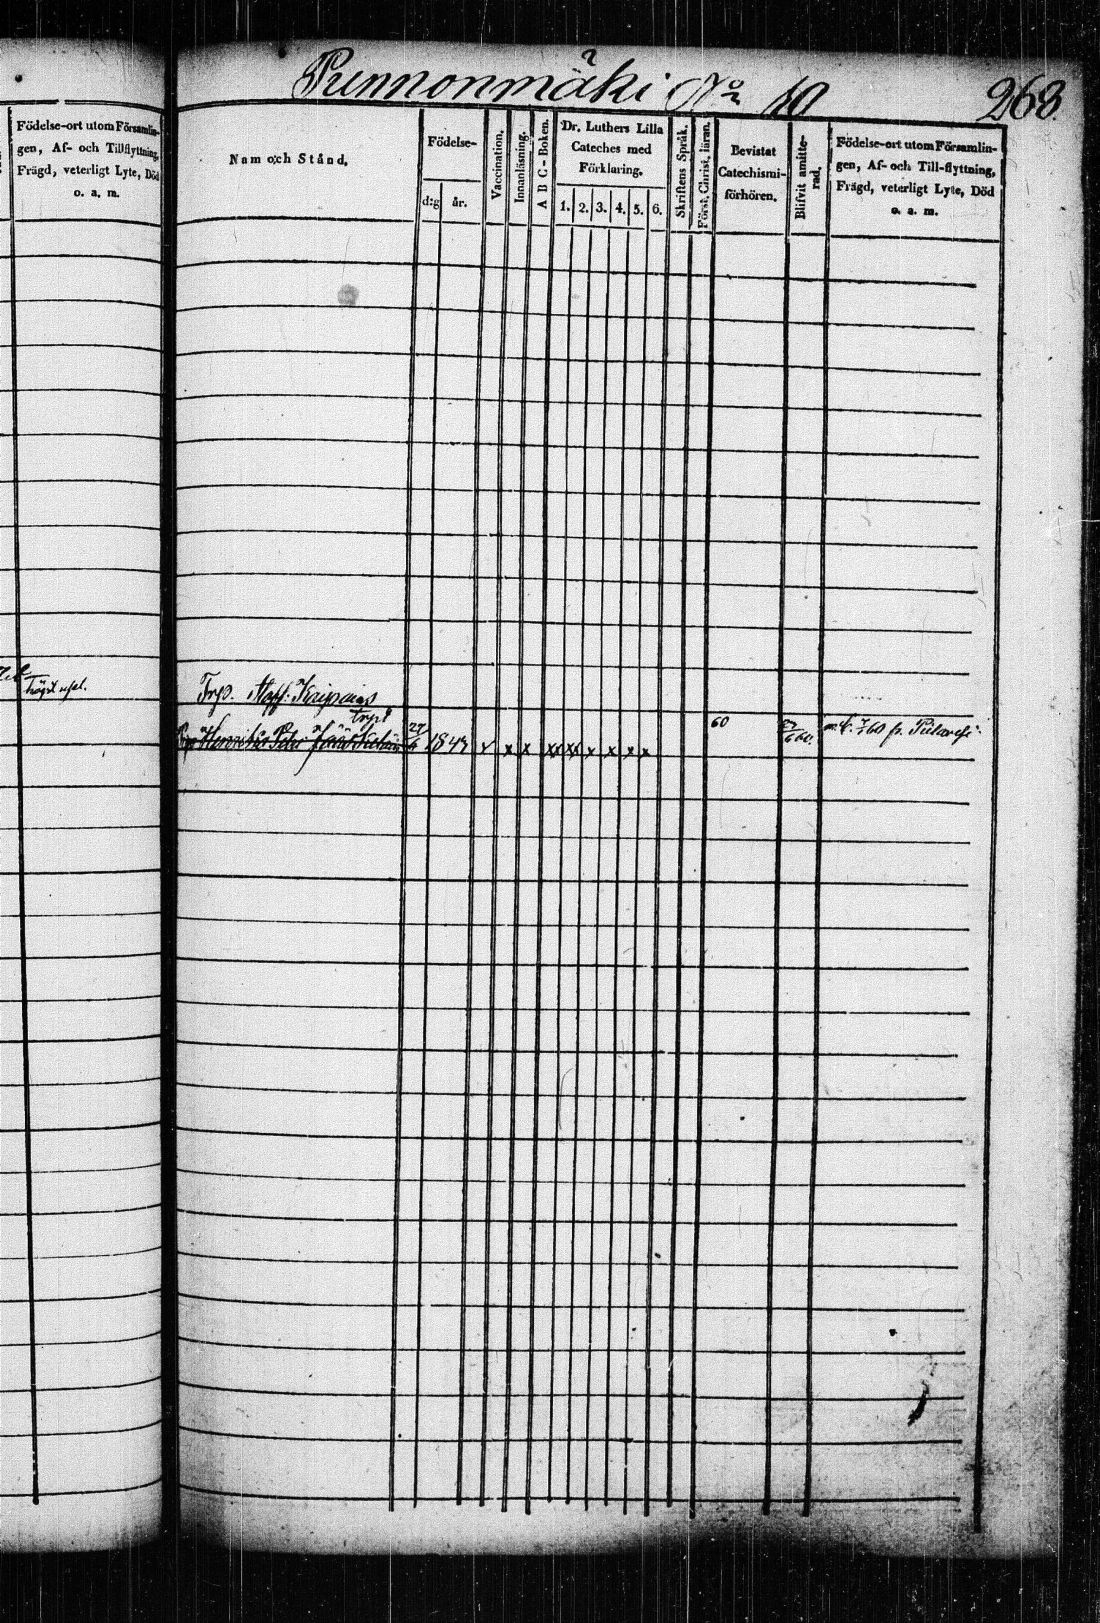 Punnonmäki No 10
263.
Födelse-ort utom Församlin-
gen, Af- och Tillflyttning,
Frägd, veterligt Lyte, Död
o. a. m.
Nam och Stånd.
Födelse-
d:g år.
Vaccination.
Innanläsning.
A B C - Boken.
Dr. Luthers Lilla
Cateches med
Förklaring.
1. 2. 3. 4. 5. 6.
Skriftens Språk.
Först. Christ. läran.
Bevistat
Catechismi-
förhören.
Blifvit amitte-
rad.
Födelse-ort utom Församlin-
gen, Af- och Till-flyttning,
Frägd, veterligt Lyte, Död
o. a. m.
Trp. Staff.
1843 x x x xx xx x x x x 60 60 fr. Pielavesi